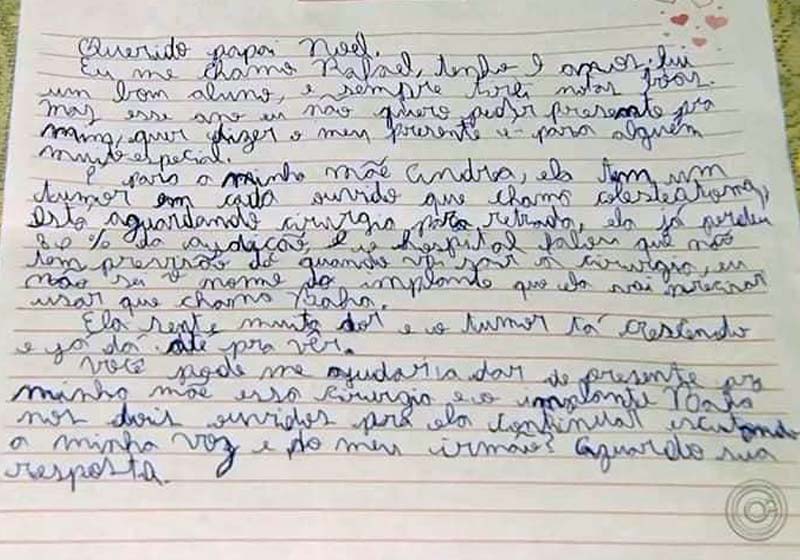 Querido papai Noel.
Eu me chamo Rafael, tenho 9 anos, fui
um bom aluno, e sempre tirei notas boas.
Mas esse ano eu não quero pedir presente pra
mim, quer dizer o meu presente é para alguem
muito especial.
É para a minha mãe Andrea, ela tem um
tumor em cada ouvido que chama colesteatoma,
Está aguardando cirurgia para retirada, ela já perdeu
80% da audição, e o hospital falou que não
tem previsão de quando vai sair a cirurgia, eu
não sei o nome do implante que ela vai precisar
usar que chama Baha.
Ela sente muita dor e o tumor tá crescendo
e já dá até pra ver.
Você pode me ajudar a dar de presente pra
minha mãe essa cirurgia e o implante Baha
nos dois ouvidos pra ela continuar escutando
a minha voz e do meu irmão? Aguardo sua
resposta.